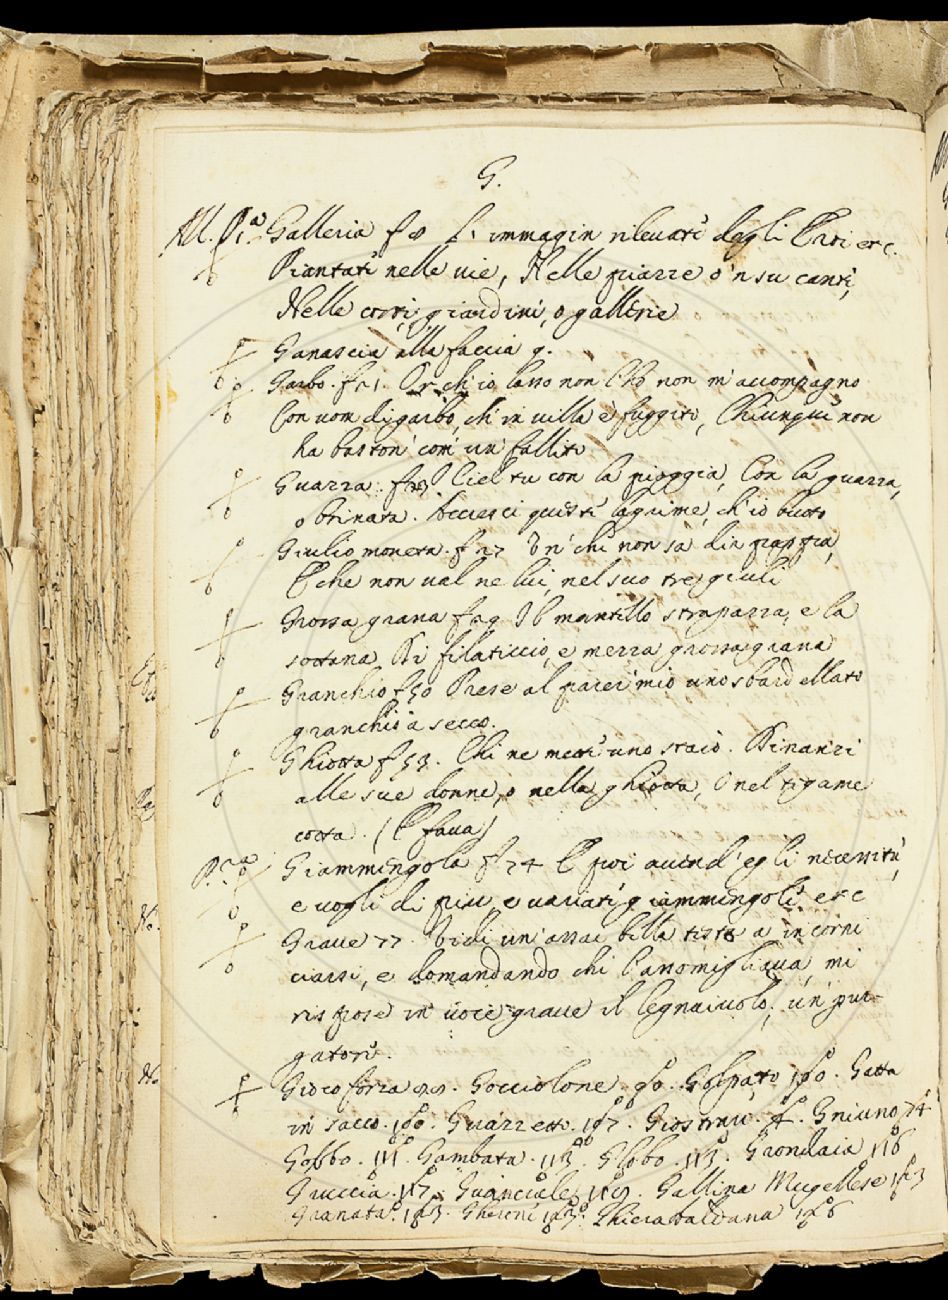 G.
Galleria f 8 immagin rilevati degli
Piantati nelle vie, Nelle piazze o 'n su canti,
Nelle corti, giardini, o gallerie
Ganascia alla faccia 9.
Garbo. f 21. ch'io lasso non l'ho non m'accompagno
Con uom di garbo, ch'in villa è fuggito, Chiunque non
ha baston com' un fallito
Guazza. Ciel tu con la pioggia, Con la guazza,
o brinata. Accresci queste lagrime, ch'io butto
Giulio moneta. f 27 chi non sa
E che non val ne lui, nel suo tre giuli
Grossa grana f 29 Il mantello strapazza, e la
sottana Di filaticcio, e mezza grossagrana
Granchio f 50 Prese al parer mio uno sbardellato
granchio a secco.
Ghiotta f 53. Chi ne mette uno staio. Dinanzi
alle sue donne, o nella ghiotta, O nel tegame
cotta. (E fava)
Giammengola f 74 E poi avend' egli necessità,
e voglia di più, e variati giammengoli etc
Grave 77. Vidi un' assai bella testa a incorni
ciarsi, e domandando chi l'assomigliava, mi
rispose in voce grave il legnaiuolo; un pur-
gatorio.
Gioco forza Gocciolone 90. 100. Gatta
in sacco. 100. Guazzetto. 107. Gniuno 74
Gobbo. 111. Gambata. 113. Globo. 113. Grondaia 116
Gruccia. 117. Guanciale 119. Gallina Mugellese 123
Granata. 123. Ghierabaldana 126